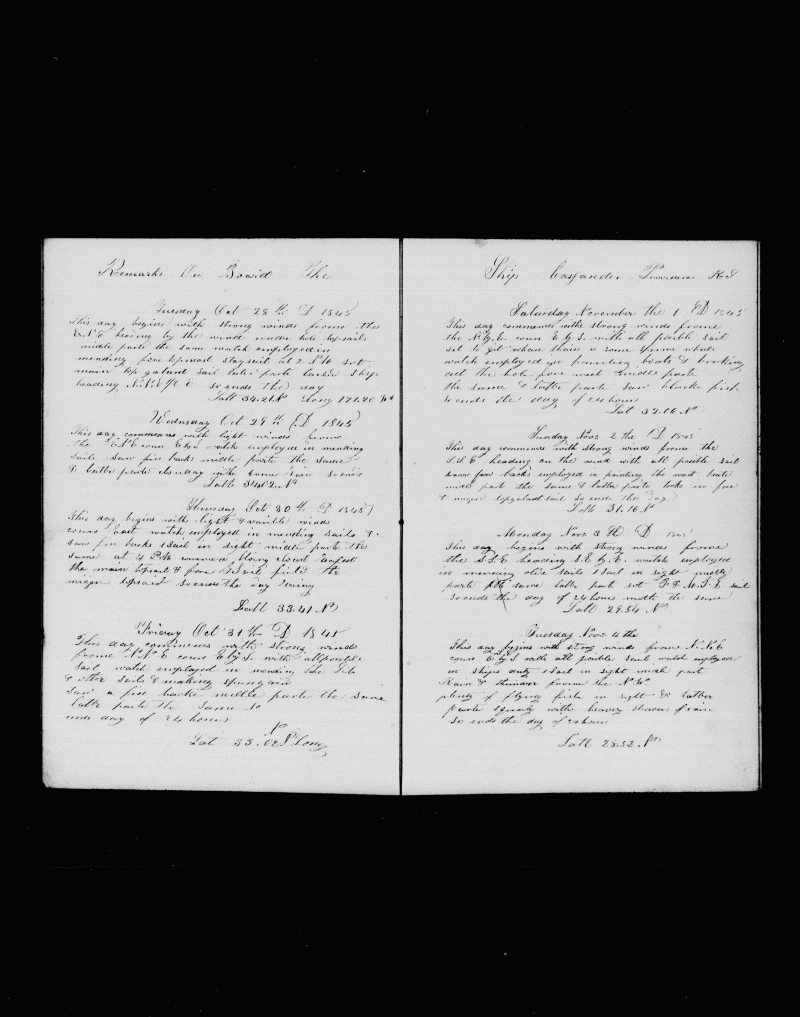 Remarks On Board The
Tuesday Oct 28th D 1845
This day begins with strong winds frome the
E.N.E heading by the wind under hole topsails
middle parte the same watch employed in
mending fore topmast staysail at 2 P M set
main top galant sail later parte tacked ship
heading N.N.E so ends the day
Latt 34.21 N Long 171.20 W
Wednesday Oct 29th D 1845
This day commences with light winds frome
The E.N.E cours watch employed in mending
sails saw fin backs middle parte the same
& latter parte the same so ends
Latt 34.12 N
Thursday Oct 30th D 1845
This day begins with light & varible winds
cours East watch employed in mending sails &
saw fin backs 1 Sail in sight middle parte the
same at 4 P.M
the main topsail & fore
mizen topsail so ends the day
Latt 33.41 N
Friday Oct 31th D 1845
This day commences with strong winds
frome N.N.E cours E by S. with all posible
Sail watch employed in mending the Jib
& other sails & making spunyarn
Saw a fin backe middle parte the same
latter parte the same so
ends day of 24 hours
Lat 33.02 N Long
Ship Cassander Providence R I
Saturday November the 1 D 1845
This day commences with strong winds frome
the N. by E. cours E by S. with all posible sail
set to get whare thare is some Sperm whales
watch employed in painting boats & breaking
out the hole fore midle parte
the same & latter parte Saw blacke fish
so ends the day of 24 hours
Lat 32.06 N
Sunday Novr 2 the D 1845
This day commences with strong winds frome the
S.S.E heading on the wind with all posible sail
saw fin backs employed in painting the wast boate
midle part the same & latter parte toke in fore
& mizen topgalant sail So ends the Day
Latt 31.16 N
Monday Novr 3 D 1845
This day begins with strong winds frome
the S.S.E heading S.E by E. watch employed
in mending olde sails 1 Sail in sight midle
parte the same latter part set sail
so ends the day of 24 hours with the same
Latt 28.54 N
Tuesday Novr 4 the
This day begins with strong winds frome N.N.E
cours E by S with all posible sail watch employed
in ships duty 1 Sail in sight midle part
Rain & thunder frome the N.W.
plenty of flying fish in sight & latter
parte squaly with heavey showers of rain
So ends the day of 24 hours
Latt 28.32 N